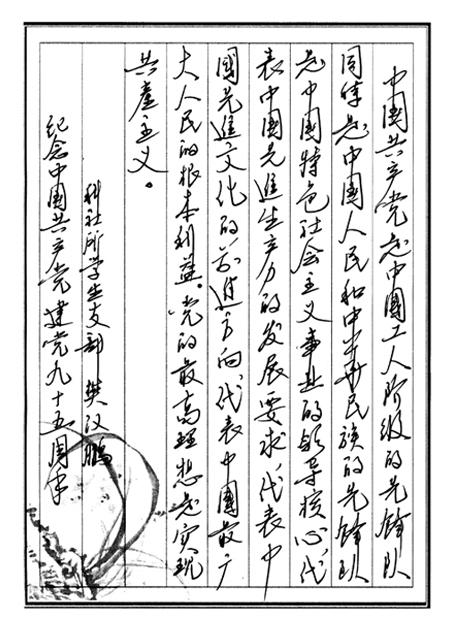 中國共产党是中國工人阶级的先鋒队
同時是中國人民和中华民族的先鋒队
是中国特色社会主义事业的领导核心，代
表中國先進生产力的发展要求，代表中
國先進文化的前進方向，代表中國最广
大人民的根本利益。党的最高理想是实现
共產主义。
科社所学生支部 樊汉鹏
纪念中國共产党建党九十五周年